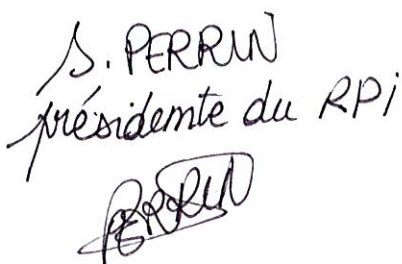 S. PERRIN
présidente du RPi
PERRIN